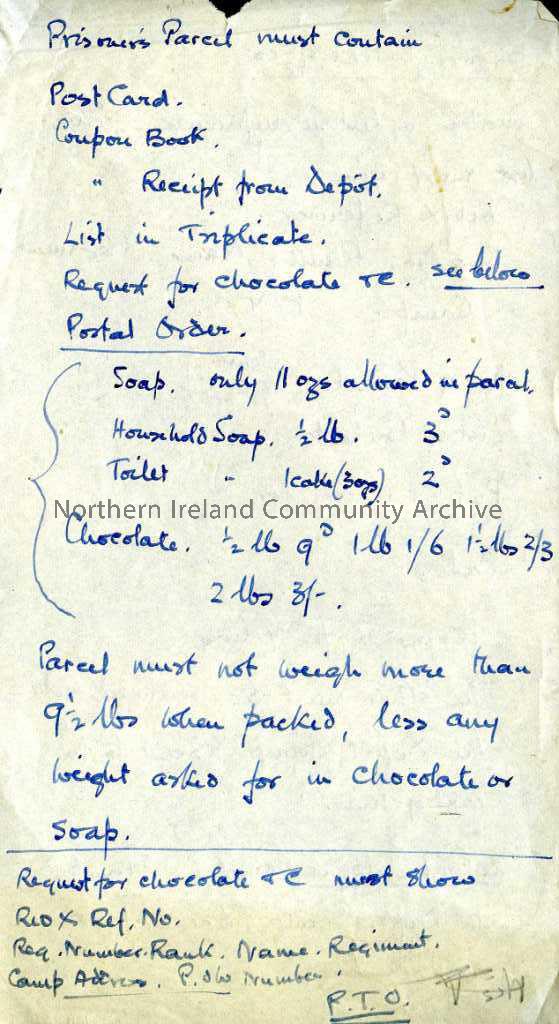 Prisoner's Parcel must contain
Post Card.
Coupon Book.
" Receipt from Depôt.
List in Triplicate.
Request for chocolate &c. see below
Postal Order.
Soap. only 11 ozs allowed in parcel.
Household Soap. ½ lb. 3ᴰ
Toilet " 1 cake (3 ozs) 2ᴰ
Northern Ireland Community Archive
Chocolate. ½ lb 9ᴰ 1 lb 1/6 1½ lbs 2/3
2 lbs 3/-.
Parcel must not weigh more than
9½ lbs when packed, less any
weight asked for in chocolate or
soap.
Request for chocolate &c must show
Red X Ref. No.
Reg. Number. Rank. Name. Regiment.
Camp Address. P.O.W Number.
P.T.O.